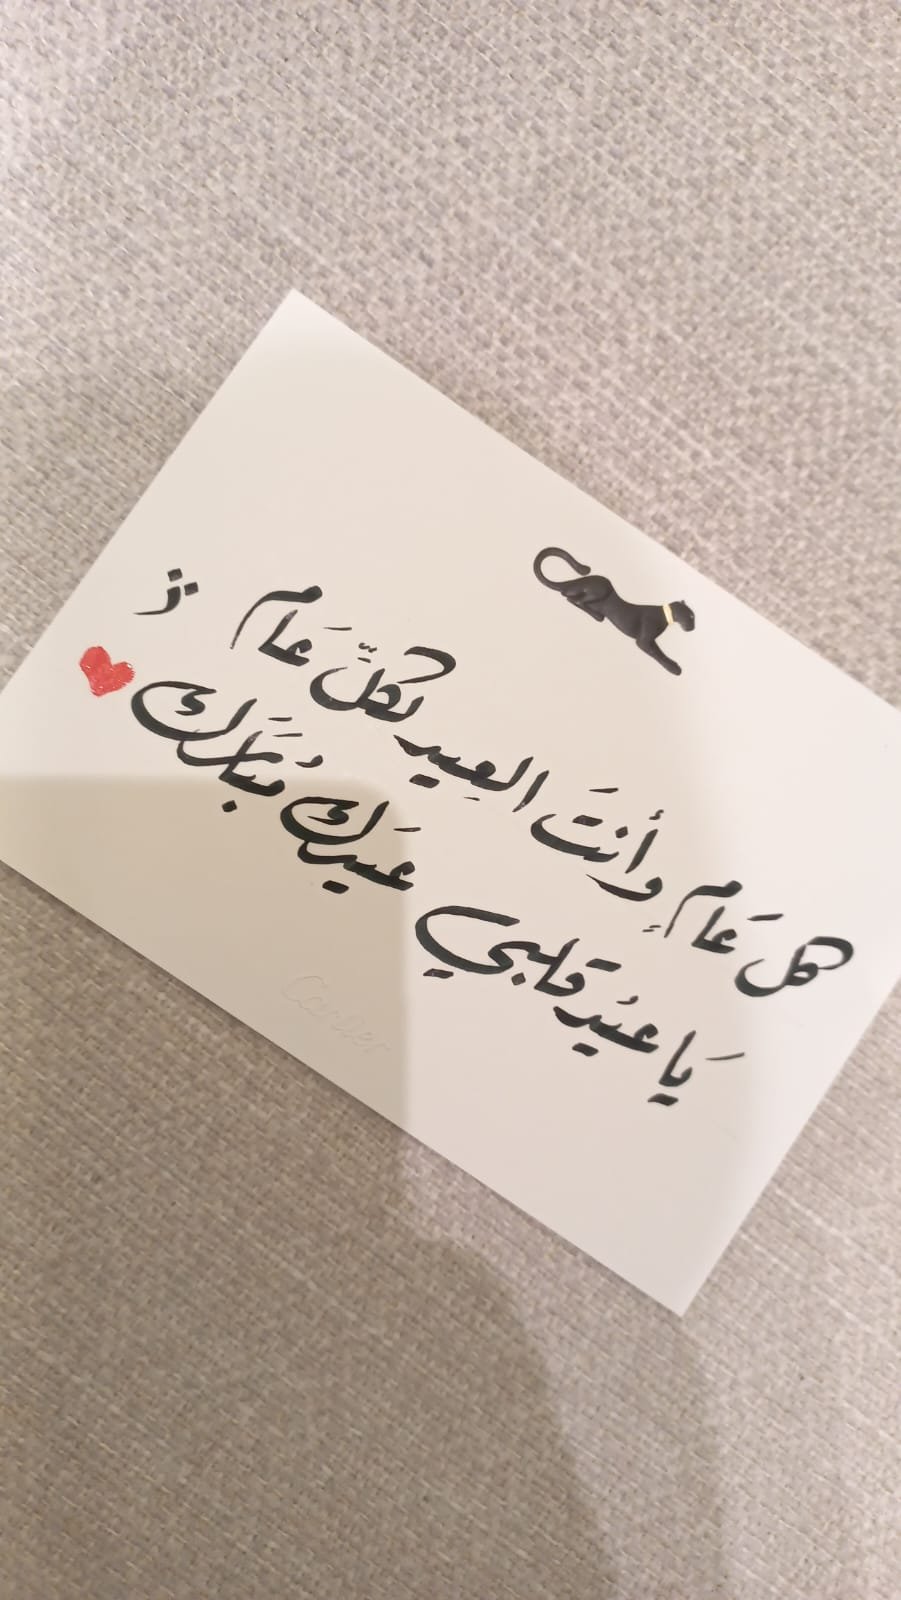 كل عَام وأنتَ العِيد لكلِّ عَام
يَا عيُد قلبي عيَدك مُبَارَك
ز
Cartier